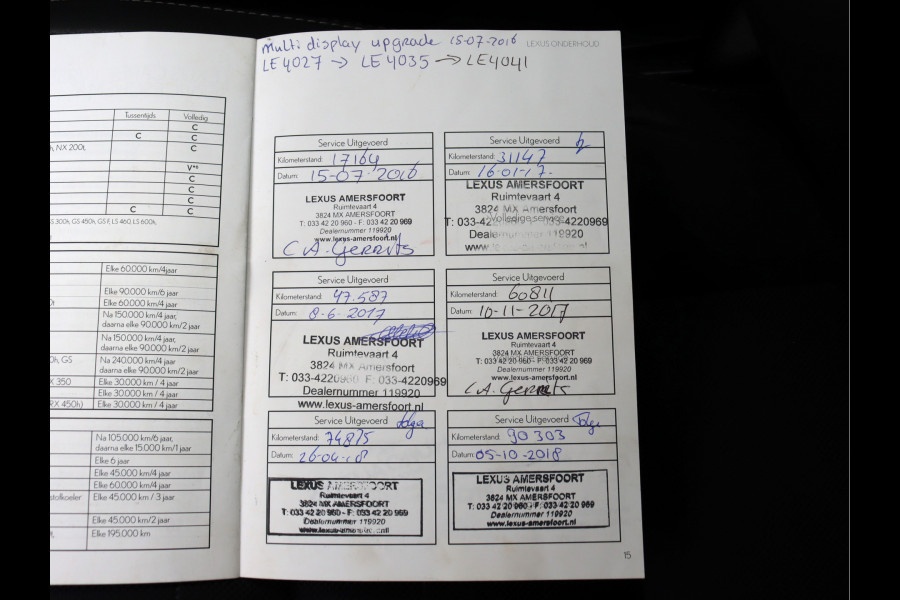 Tussentijds Volledig
C
C C
h, NX 200t, C
V*⁸
C
C
C
GS 300h, GS 450h, GS F, LS 460, LS 600h, C C
Elke 60.000 km/4jaar
Elke 90.000 km/6 jaar
Elke 60.000 km/4 jaar
Na 150.000 km/4 jaar,
daarna elke 90.000 km/2 jaar
Na 150.000 km/4 jaar,
daarna elke 90.000 km/2 jaar
0h, GS Na 240.000 km/4 jaar
daarna elke 90.000 km/2 jaar
X 350 Elke 30.000 km / 4 jaar
Elke 30.000 km / 4 jaar
RX 450h) Elke 30.000 km / 4 jaar
Na 105.000 km/6 jaar,
daarna elke 15.000 km/1 jaar
Elke 6 jaar
Elke 45.000 km/4 jaar
Elke 60.000 km/4 jaar
stofkoeler Elke 45.000 km / 3 jaar
Elke 45.000 km/2 jaar
Elke 195.000 km
multi display upgrade 15-07-2016 LEXUS ONDERHOUD
LE4027 → LE4035 → LE4041
Service Uitgevoerd
Kilometerstand: 17164
Datum: 15-07-2016
LEXUS AMERSFOORT
Ruimtevaart 4
3824 MX AMERSFOORT
T: 033 42 20 960 - F: 033 42 20 969
Dealernummer 119920
www.lexus-amersfoort.nl
C.A. Gerrits
Service Uitgevoerd
Kilometerstand: 31147
Datum: 16-01-17.
LEXUS AMERSFOORT
Ruimtevaart 4
3824 MX Amersfoort
Volledige service
T: 033-4220960 F: 033-4220969
Dealernummer 119920
www.lexus-amersfoort.nl
Service Uitgevoerd
Kilometerstand: 47.587
Datum: 8-6-2017
LEXUS AMERSFOORT
Ruimtevaart 4
3824 MX Amersfoort
T: 033-4220960 F: 033-4220969
Dealernummer 119920
www.lexus-amersfoort.nl
Service Uitgevoerd
Kilometerstand: 60811
Datum: 10-11-2017
LEXUS AMERSFOORT
Ruimtevaart 4
3824 MX AMERSFOORT
T: 033 42 20 960 - F: 033 42 20 969
Dealernummer 119920
www.lexus-amersfoort.nl
C.A. Gerrits
Service Uitgevoerd
Kilometerstand: 74815
Datum: 26-04-18
LEXUS AMERSFOORT
Ruimtevaart 4
3824 MX AMERSFOORT
T: 033 42 20 960 - F: 033 42 20 969
Dealernummer 119920
www.lexus-amersfoort.nl
Service Uitgevoerd
Kilometerstand: 90 303
Datum: 05-10-2018
LEXUS AMERSFOORT
Ruimtevaart 4
3824 MX AMERSFOORT
T: 033 42 20 960 - F: 033 42 20 969
Dealernummer 119920
www.lexus-amersfoort.nl
15